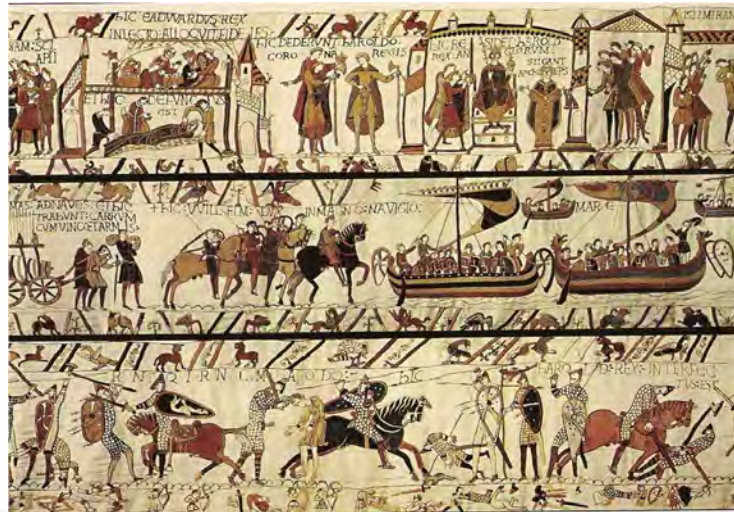 NAM: SCI
APLI
hIC EADVVARDUS: REX
IN LECTO: ALLOQUIT: FIDELES:
ET hIC: DEFUNCTUS
EST
hIC DEDERUNT: hAROLDO:
CORO NA REGIS
hIC RE SIDET: hAROLD
REX: AN GLORUM:
STIGANT
ARChIEPS
ISTI MIRAN
MAS: AD NAVES: ET hIC
TRAhUNT: CARRUM
CUM VINO: ET ARMIS:
+ hIC: VVILLELM: DUX IN MAGNO: NAVIGIO:
MARE
hAROLDO: hIC
hAROLD: REX: INTERFEC
TUS: EST